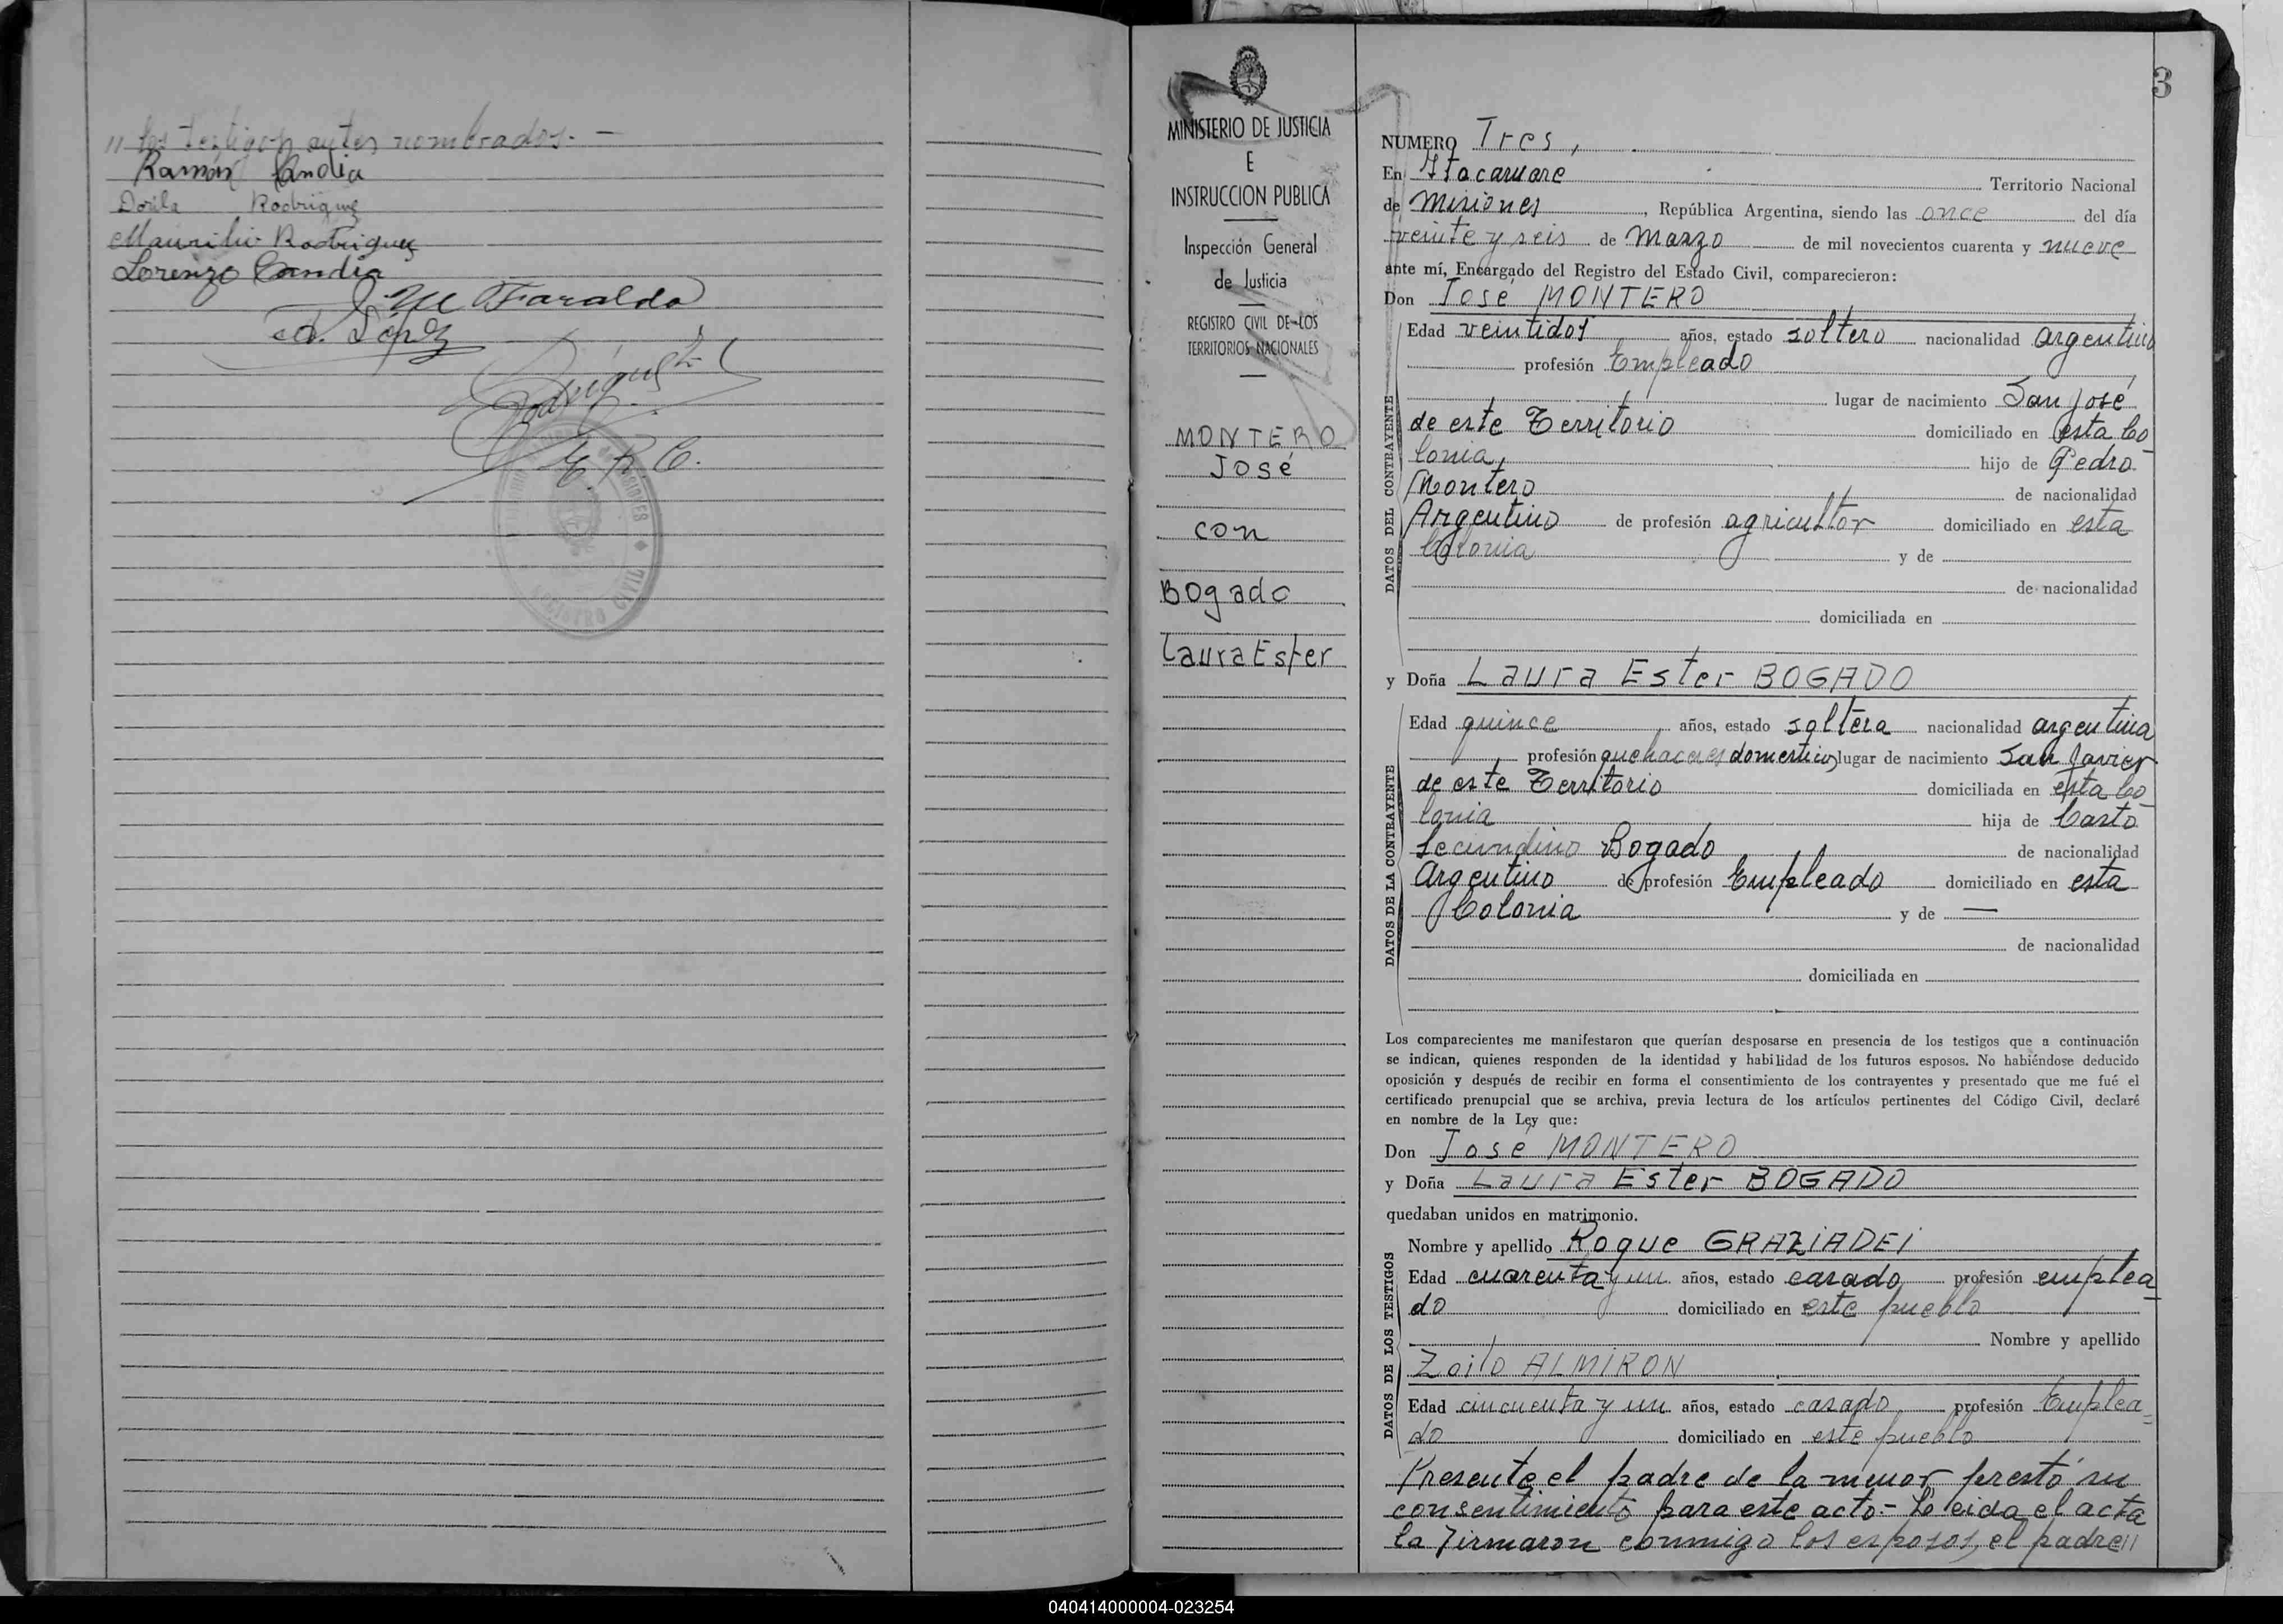 11 los testigos antes nombrados. —
Ramón Candia
Dorila Rodriguez
Maurilio Rodriguez
Lorenzo Candia
M Faraldo
A. López
E. R. C.
REGISTRO CIVIL
MINISTERIO DE JUSTICIA
E
INSTRUCCION PUBLICA
Inspección General
de Justicia
REGISTRO CIVIL DE LOS
TERRITORIOS NACIONALES
MONTERO
José
con
Bogado
Laura Ester
3
NUMERO Tres,
En Itacaruare Territorio Nacional
de Misiones, República Argentina, siendo las once del día
veinte y seis de Marzo de mil novecientos cuarenta y nueve
ante mí, Encargado del Registro del Estado Civil, comparecieron:
Don José MONTERO
DATOS DEL CONTRAYENTE
Edad veintidos años, estado soltero nacionalidad argentino
profesión Empleado
lugar de nacimiento San José
de este Territorio domiciliado en esta Co
lonia, hijo de Pedro
Montero de nacionalidad
Argentino de profesión agricultor domiciliado en esta
Colonia y de
de nacionalidad
domiciliada en
y Doña Laura Ester BOGADO
DATOS DE LA CONTRAYENTE
Edad quince años, estado soltera nacionalidad argentina
profesión quehaceres domesticos lugar de nacimiento San Javier
de este Territorio domiciliada en esta Co
lonia hija de Casto
Secundino Bogado de nacionalidad
Argentino de profesión Empleado domiciliado en esta
Colonia y de —
de nacionalidad
domiciliada en
Los comparecientes me manifestaron que querían desposarse en presencia de los testigos que a continuación
se indican, quienes responden de la identidad y habilidad de los futuros esposos. No habiéndose deducido
oposición y después de recibir en forma el consentimiento de los contrayentes y presentado que me fué el
certificado prenupcial que se archiva, previa lectura de los artículos pertinentes del Código Civil, declaré
en nombre de la Ley que:
Don José MONTERO
y Doña Laura Ester BOGADO
quedaban unidos en matrimonio.
DATOS DE LOS TESTIGOS
Nombre y apellido Roque GRAZIADEI
Edad cuarenta y un años, estado casado profesión emplea
do domiciliado en este pueblo
Nombre y apellido
Zoilo ALMIRON
Edad cincuenta y un años, estado casado profesión Emplea=
do domiciliado en este pueblo
Presente el padre de la menor prestó su
consentimiento para este acto.- Leida el acta
la firmaron conmigo los esposos, el padre 11
040414000004-023254